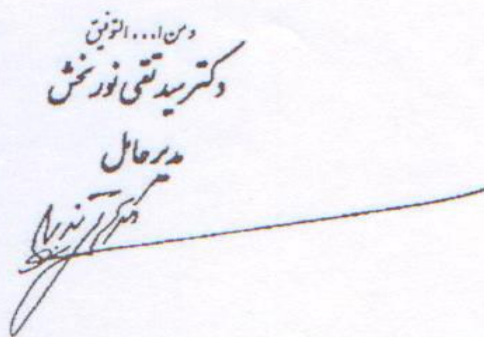 و من ا... التوفیق
دکتر سید تقی نوربخش
مدیر عامل